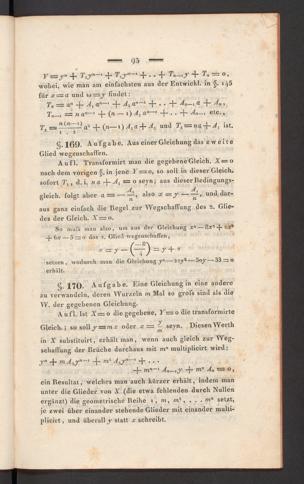 — 95 —
Y = yⁿ + T₁yⁿ⁻¹ + T₂yⁿ⁻² + . . + Tₙ₋₁y + Tₙ = 0,
wobei, wie man am einfachsten aus der Entwickl. in §. 145
für x = a und ω = y findet:
Tₙ = aⁿ + A₁ aⁿ⁻¹ + A₂ aⁿ⁻² + . . + Aₙ₋₁ a + Aₙ,
Tₙ₋₁ = n aⁿ⁻¹ + (n − 1) A₁ aⁿ⁻² + . . + Aₙ₋₁ etc.,
a² + (n−1) A₁ a + A₂ und T₁ = na + A₁ ist.
§. 169. Aufgabe. Aus einer Gleichung das zweite
Glied wegschaffen.
Aufl. Transformirt man die gegebene Gleich. X = 0
nach dem vorigen §. in jene Y = 0, so soll in dieser Gleich.
sofort T₁, d. i. na + A₁ = 0 seyn; aus dieser Bedingungs-
gleich. folgt aber a = − A₁/n, also x = y − A₁/n, und dar-
aus ganz einfach die Regel zur Wegschaffung des 2. Glie-
des der Gleich. X = 0.
So muss man also, um aus der Gleichung
das 2. Glied wegzuschaffen,
x = y − (−8/4) = y + 2
setzen, wodurch man die Gleichung
erhält.
§. 170. Aufgabe. Eine Gleichung in eine andere
zu verwandeln, deren Wurzeln m Mal so gross sind als die
W. der gegebenen Gleichung.
Aufl. Ist X = 0 die gegebene, Y = 0 die transformirte
Gleich.; so soll y = m x oder x = y/m seyn. Diesen Werth
in X substituirt, erhält man, wenn auch gleich zur Weg-
schaffung der Brüche durchaus mit mⁿ multiplicirt wird:
yⁿ + m A₁ yⁿ⁻¹ + m² A₂ yⁿ⁻² + . . .
+ mⁿ⁻¹ Aₙ₋₁ y + mⁿ Aₙ = 0,
ein Resultat, welches man auch kürzer erhält, indem man
unter die Glieder von X (die etwa fehlenden durch Nullen
ergänzt) die geometrische Reihe 1, m, m², . . . . mⁿ setzt,
je zwei über einander stehende Glieder mit einander multi-
plicirt, und überall y statt x schreibt.